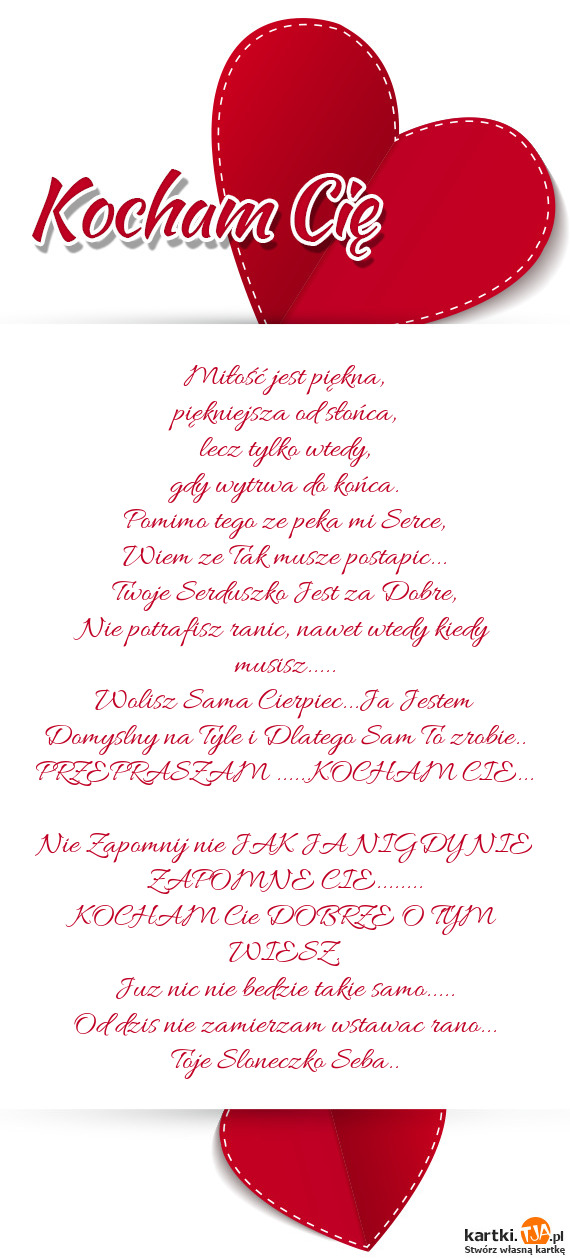 Kocham Cię
Miłość jest piękna,
piękniejsza od słońca,
lecz tylko wtedy,
gdy wytrwa do końca.
Pomimo tego ze peka mi Serce,
Wiem ze Tak musze postapic...
Twoje Serduszko Jest za Dobre,
Nie potrafisz ranic, nawet wtedy kiedy
musisz.....
Wolisz Sama Cierpiec...Ja Jestem
Domyslny na Tyle i Dlatego Sam To zrobie..
PRZEPRASZAM .....KOCHAM CIE...
Nie Zapomnij nie JAK JA NIGDY NIE
ZAPOMNE CIE........
KOCHAM Cie DOBRZE O TYM
WIESZ
Juz nic nie bedzie takie samo.....
Od dzis nie zamierzam wstawac rano...
Toje Sloneczko Seba..
kartki.TJA.pl
Stwórz własną kartkę